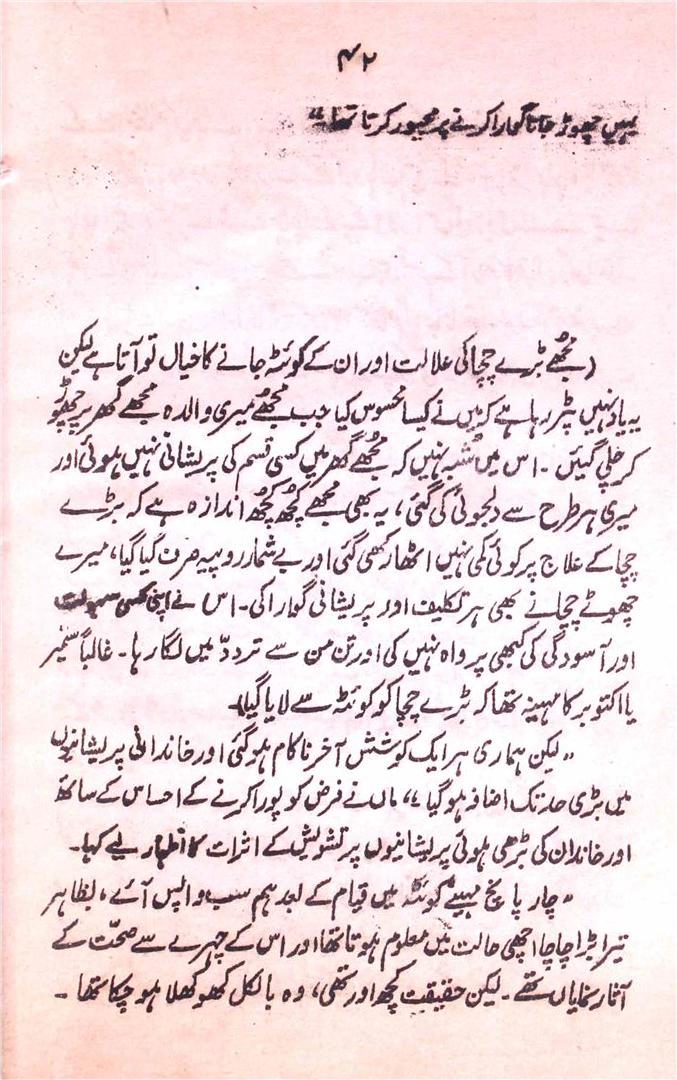 ۴۲
یہیں چھوڑ جانا گوارا کرنے پر مجبور کرتا تھا۔"
(مجھے بڑے چچا کی علالت اور ان کے کوئٹہ جانے کا خیال تو آتا ہے لیکن
یہ یاد نہیں پڑ رہا ہے کہ میں نے کیسا محسوس کیا جب مجھے میری والدہ مجھے گھر پر چھوڑ
کر چلی گئیں۔ اس میں شبہ نہیں کہ مجھے گھر میں کسی قسم کی پریشانی نہیں ہوئی اور
میری ہر طرح سے دلجوئی کی گئی، یہ بھی مجھے کچھ کچھ اندازہ ہے کہ بڑے
چچا کے علاج پر کوئی کمی نہیں اٹھا رکھی گئی اور بے شمار روپیہ صرف کیا گیا، میرے
چھوٹے چچا نے بھی ہر تکلیف اور پریشانی گوارا کی۔ اس نے اپنی کسی سہولت
اور آسودگی کی کبھی پرواہ نہیں کی اور تن من سے تردّد میں لگا رہا۔ غالباً ستمبر
یا اکتوبر کا مہینہ تھا کہ بڑے چچا کو کوئٹہ سے لایا گیا)۔
"لیکن ہماری ہر ایک کوشش آخر ناکام ہو گئی اور خاندانی پریشانیوں
میں بڑی حد تک اضافہ ہو گیا۔" ماں نے فرض کو پورا کرنے کے احساس کے ساتھ
اور خاندان کی بڑھی ہوئی پریشانیوں پر تشویش کے اثرات کا اظہار لیے کہا۔
"چار پانچ مہینے کوئٹہ میں قیام کے بعد ہم سب واپس آئے، بظاہر
تیرا بڑا چاچا اچھی حالت میں معلوم ہوتا تھا اور اس کے چہرے سے صحّت کے
آثار نمایاں تھے۔ لیکن حقیقت کچھ اور تھی، وہ بالکل کھوکھلا ہو چکا تھا۔